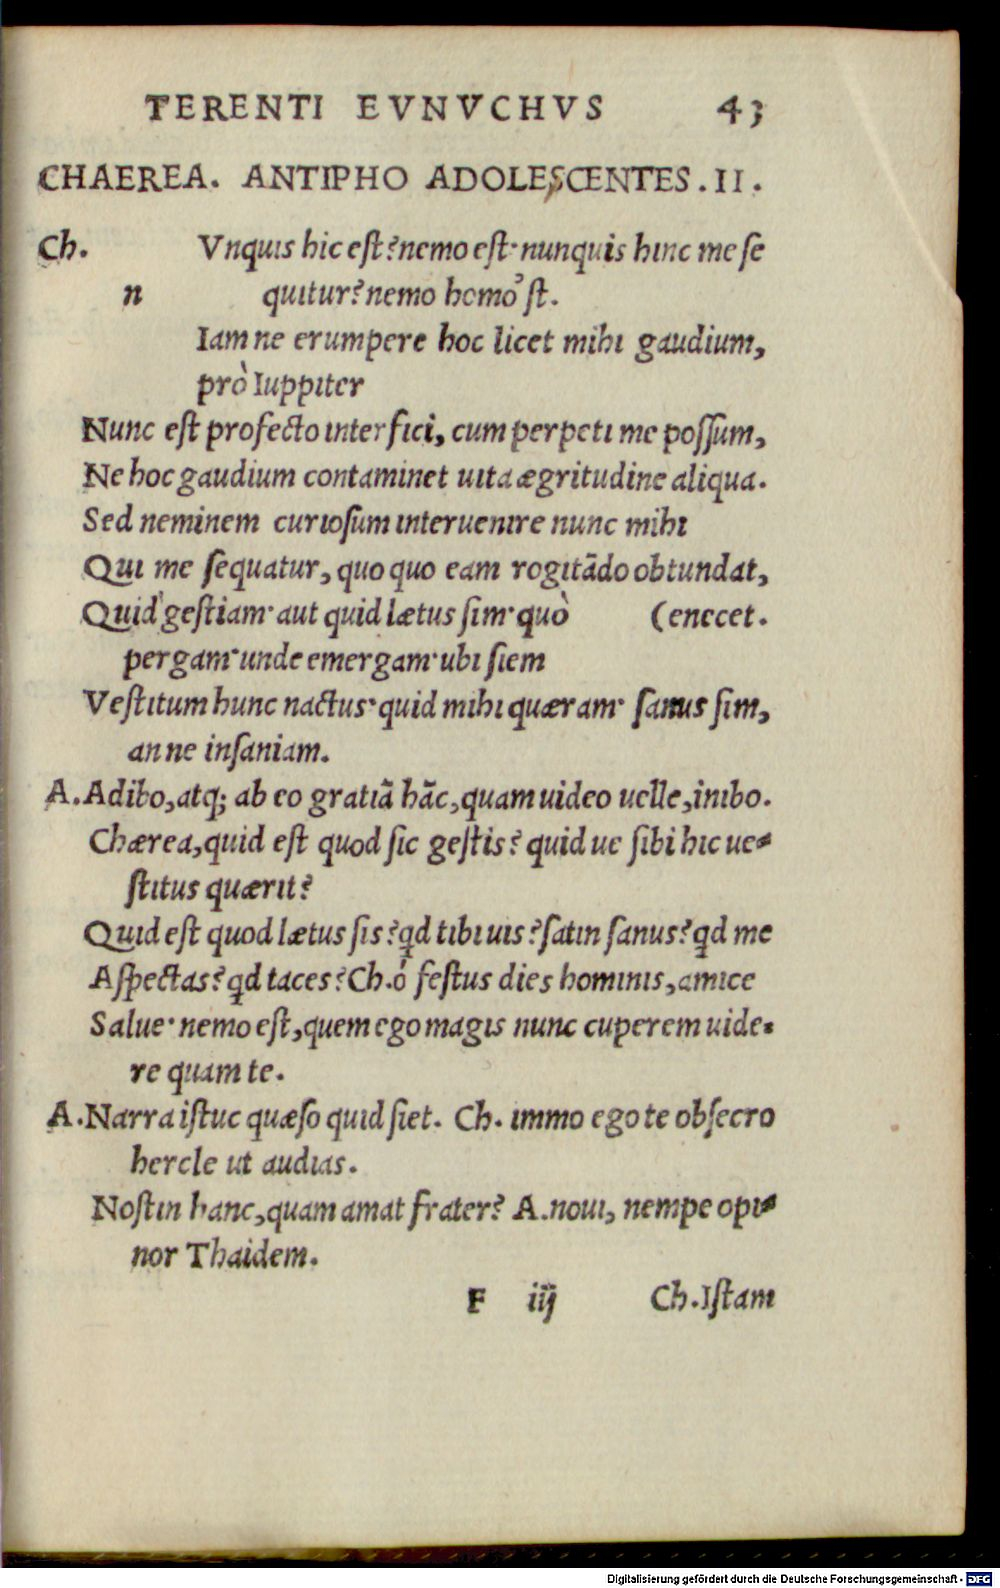 TERENTI EVNVCHVS 43
CHAEREA. ANTIPHO ADOLESCENTES.II.
Ch. Vnquis hic eſt? nemo eſt· nunquis hinc me ſe
n quitur? nemo homo'ſt.
Iam ne erumpere hoc licet mihi gaudium,
prò Iuppiter
Nunc eſt profecto interfici, cum perpeti me poſſum,
Ne hoc gaudium contaminet uita ægritudine aliqua.
Sed neminem curioſum interuenire nunc mihi
Qui me ſequatur, quo quo eam rogitādo obtundat,
Quid geſtiam· aut quid lætus ſim· quò (enecet.
pergam· unde emergam· ubi ſiem
Veſtitum hunc nactus· quid mihi quæram· ſanus ſim,
an ne inſaniam.
A. Adibo, atq; ab eo gratiā hāc, quam uideo uelle, inibo.
Chærea, quid eſt quod ſic geſtis? quid ue ſibi hic ue-
ſtitus quærit?
Quid eſt quod lætus ſis? qd tibi uis? ſatin ſanus? qd me
Aſpectas? qd taces? Ch. ó feſtus dies hominis, amice
Salue· nemo eſt, quem ego magis nunc cuperem uide-
re quam te.
A. Narra iſtuc quæſo quid ſiet. Ch. immo ego te obſecro
hercle ut audias.
Noſtin hanc, quam amat frater? A. noui, nempe opi-
nor Thaidem.
F iij Ch. Iſtam
Digitalisierung gefördert durch die Deutsche Forschungsgemeinschaft - DFG